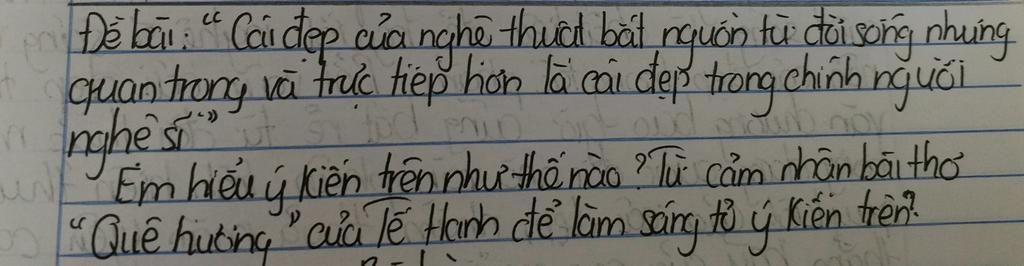 Đề bài: "Cái đẹp của nghệ thuật bắt nguồn từ đời sống nhưng
quan trọng và trực tiếp hơn là cái đẹp trong chính người
nghệ sĩ"
Em hiểu ý kiến trên như thế nào? Từ cảm nhận bài thơ
"Quê hương" của Tế Hanh để làm sáng tỏ ý kiến trên?